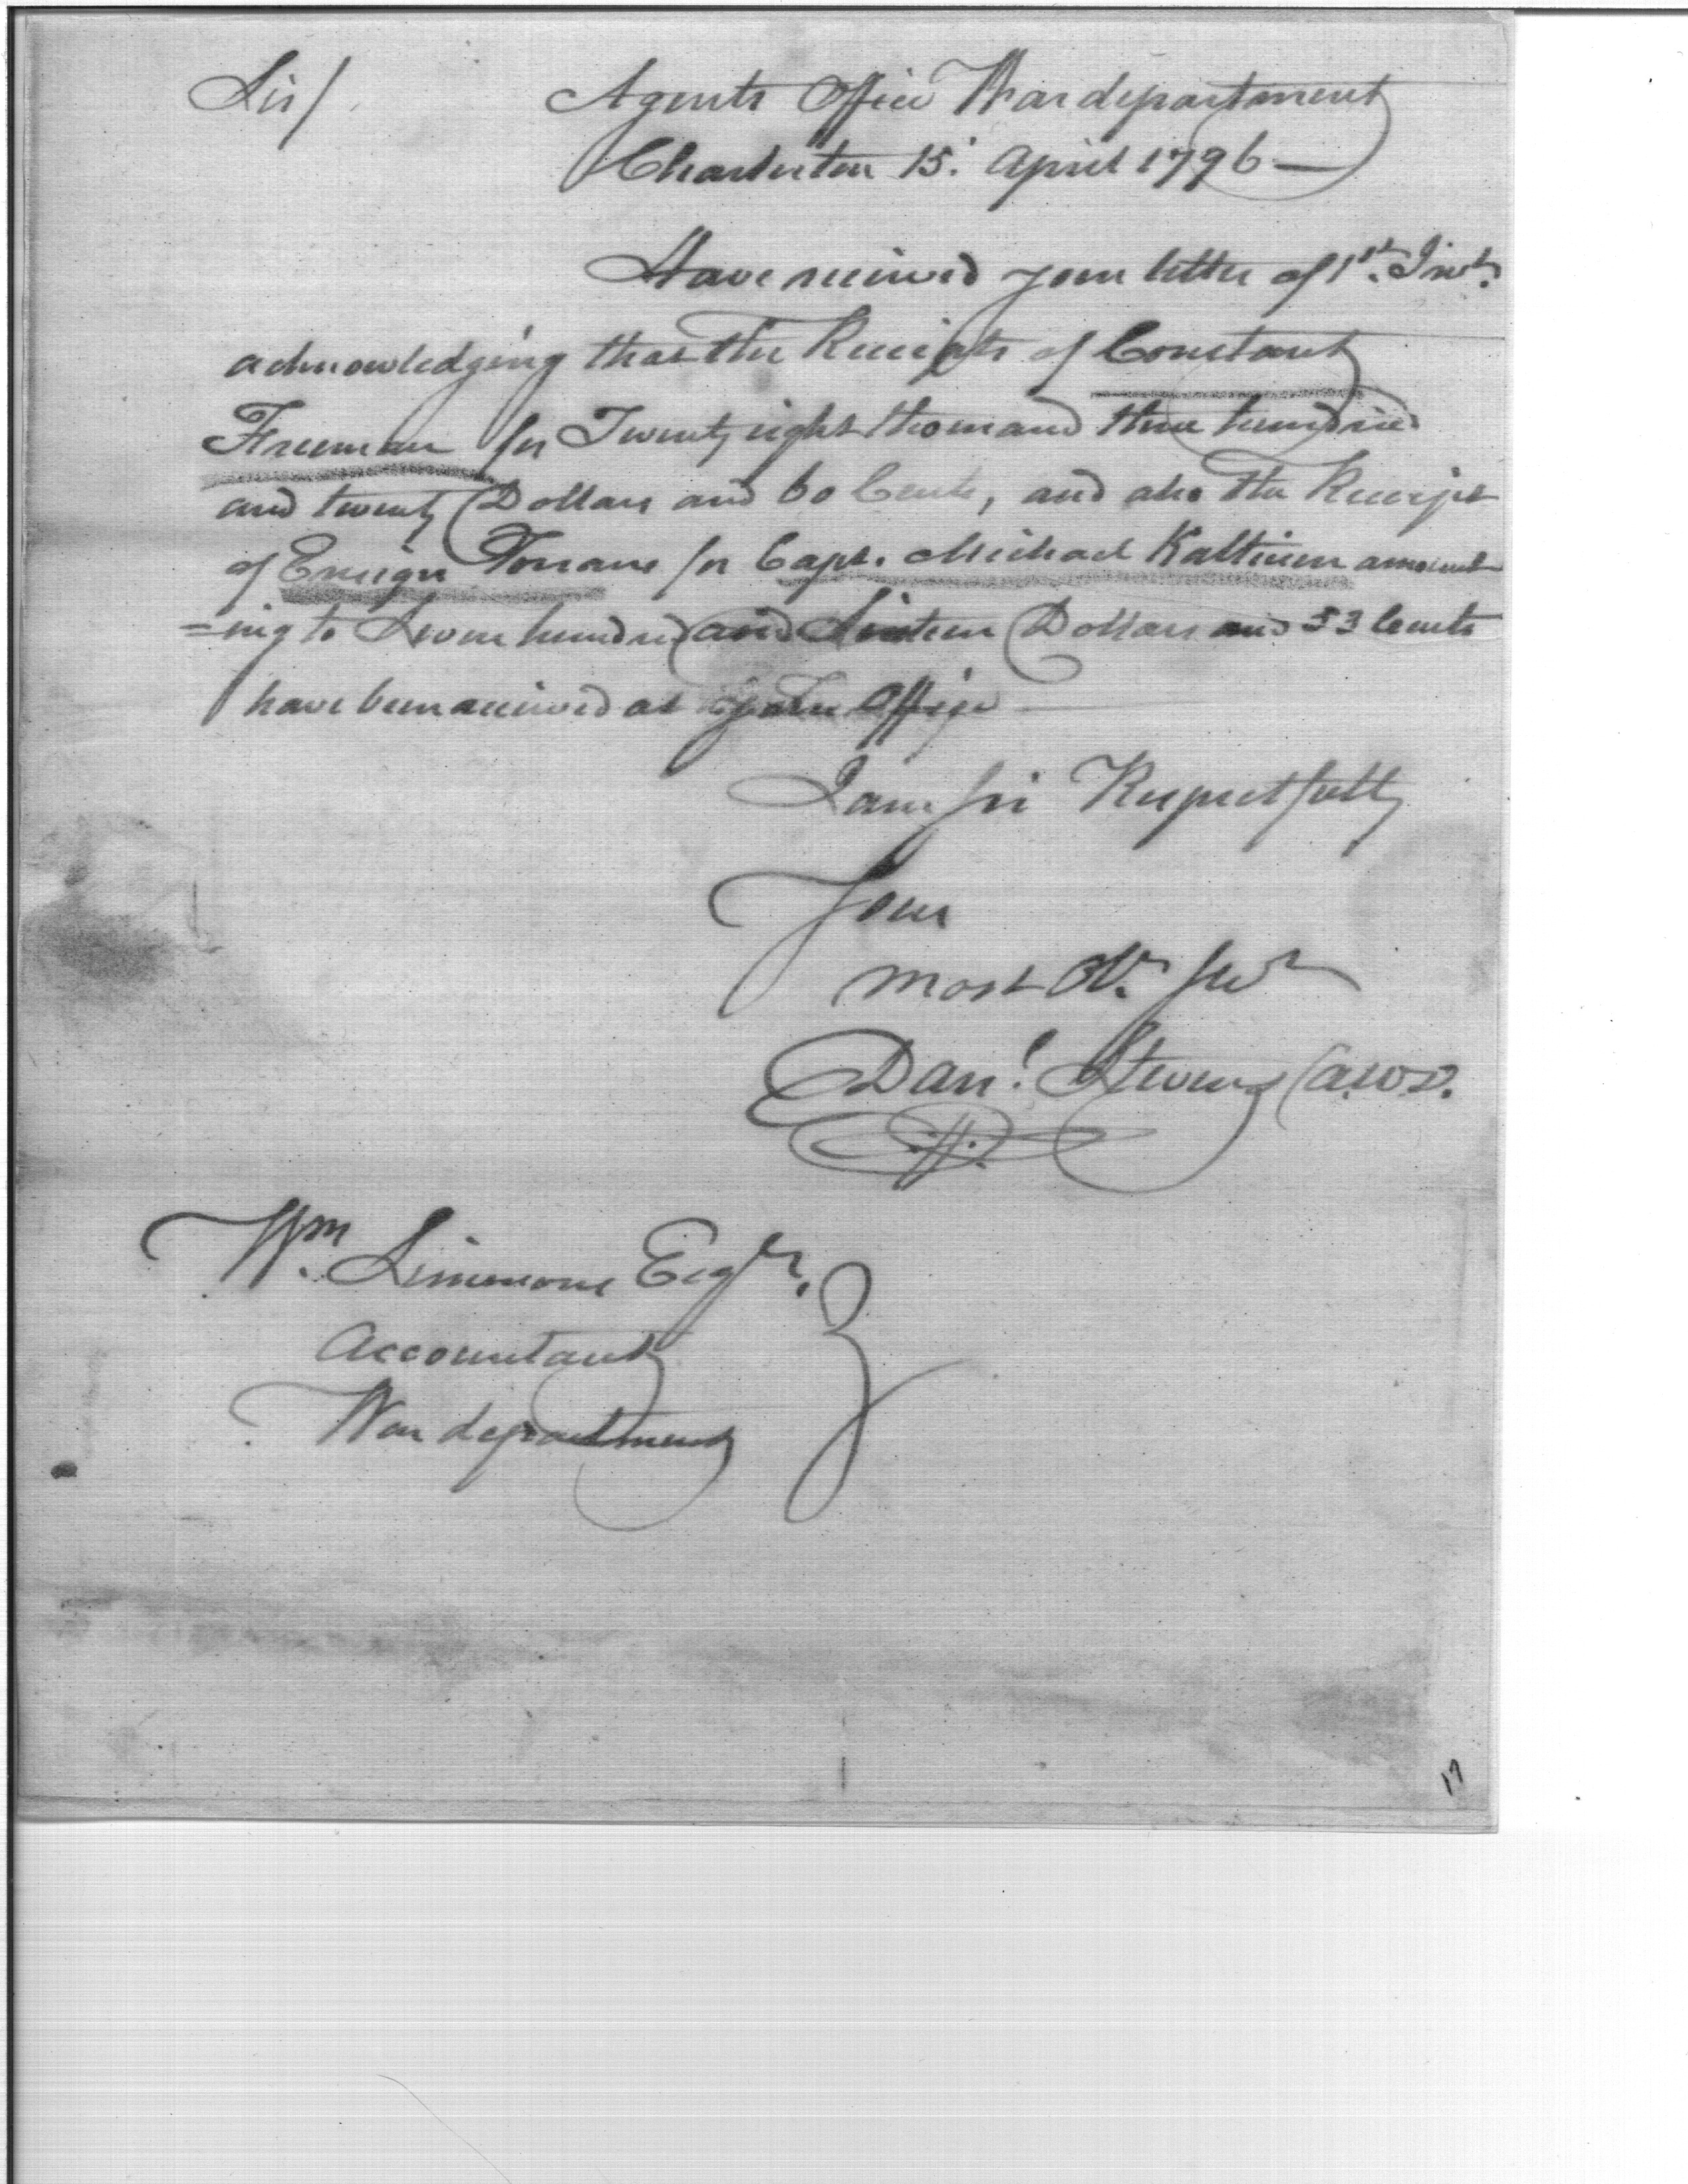 Sir/
Agents Office War department
Charleston 15. April 1796 —
Have received your letter of 1st. Inst.
acknowledging that the Receipts of Constant
Freeman for Twenty eight thousand three hundred
and twenty Dollars and 60 Cents, and also the Receipt
of Ensign for Capt. Michael Kalteisen amount
=ing to Seven hundred and Sixteen Dollars and 53 Cents
have been received at your Office
I am Sir Respectfully
Your
most Obt. Sert
Danl. Stevens A.W.D.
Wm. Simmons Esqr.
Accountant
War department
17